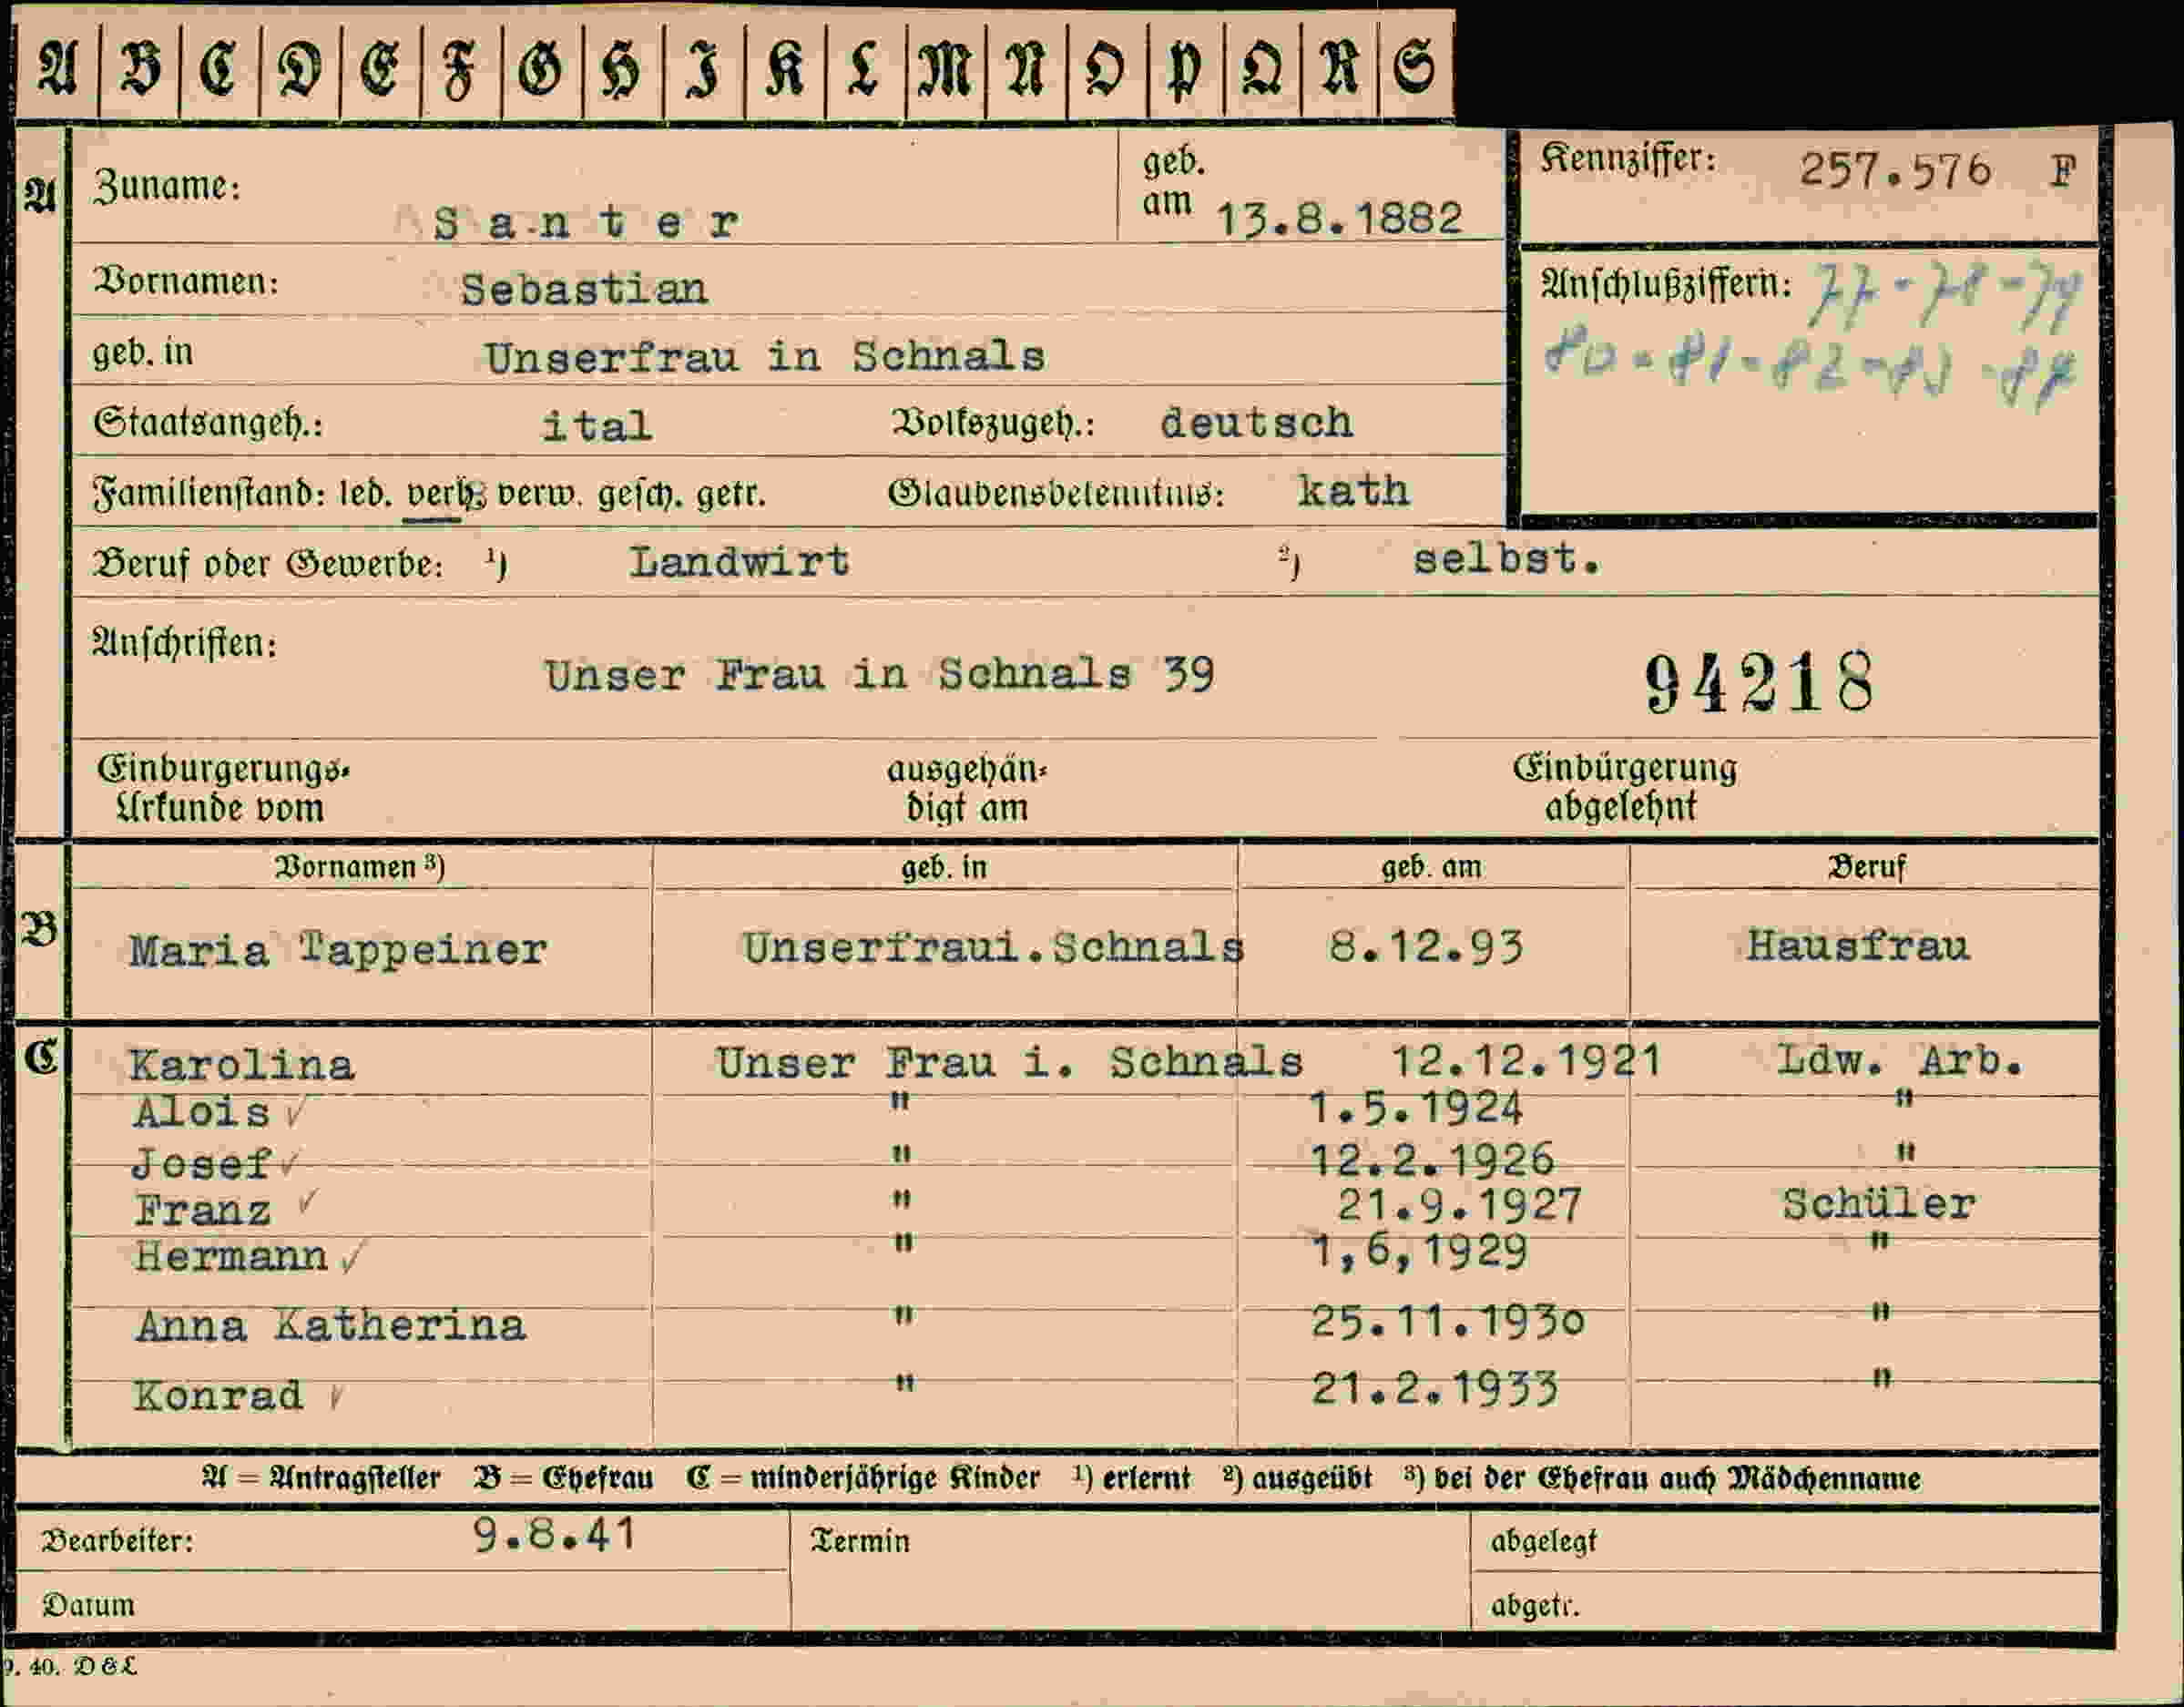 A B C D E F G H I K L M N O P Q R S
A Zuname: Santer geb. am 13.8.1882 Kennziffer: 257.576 F
Vornamen: Sebastian Anschlußziffern: 77-78-79
80-81-82-83-84
geb. in Unserfrau in Schnals
Staatsangeh.: ital Volkszugeh.: deutsch
Familienstand: led. verh. verw. gesch. getr. Glaubensbekenntnis: kath
Beruf oder Gewerbe: 1) Landwirt 2) selbst.
Anschriften: Unser Frau in Schnals 39 94218
Einbürgerungs- ausgehän- Einbürgerung
Urkunde vom digt am abgelehnt
Vornamen 3) geb. in geb. am Beruf
B Maria Tappeiner Unserfraui.Schnals 8.12.93 Hausfrau
C Karolina Unser Frau i. Schnals 12.12.1921 Ldw. Arb.
Alois ✓ " 1.5.1924 "
Josef ✓ " 12.2.1926 "
Franz ✓ " 21.9.1927 Schüler
Hermann ✓ " 1,6,1929 "
Anna Katherina " 25.11.1930 "
Konrad ✓ " 21.2.1933 "
A = Antragsteller B = Ehefrau C = minderjährige Kinder 1) erlernt 2) ausgeübt 3) bei der Ehefrau auch Mädchenname
Bearbeiter: 9.8.41 Termin abgelegt
Datum abgetr.
9. 40. D & L